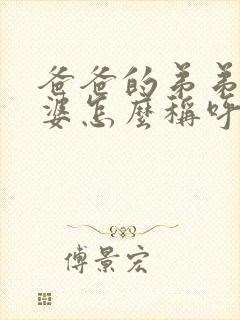 爸爸的弟弟
婆怎麼稱呼
傅景宏